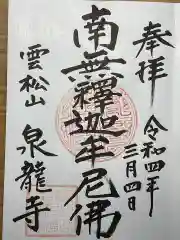 奉拝
令和四年
三月四日
南無釋迦牟尼佛
雲松山
泉龍寺